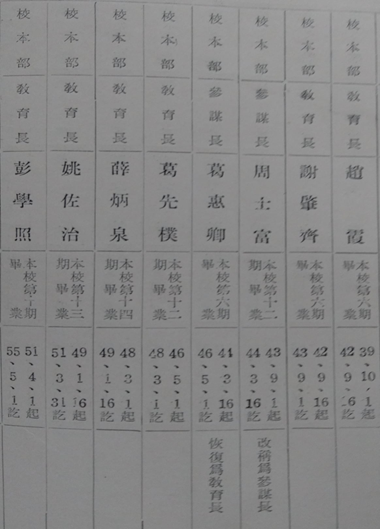 校本部 教育長 趙霞 本校第六期畢業 39、10、1起 42、9、16訖
校本部 教育長 謝肇齊 本校第六期畢業 42、9、16起 43、9、1訖
校本部 參謀長 周士富 本校第十二期畢業 43、9、1起 44、3、16訖 改稱為參謀長
校本部 參謀長 葛惠卿 本校第六期畢業 44、3、16起 46、5、1訖 恢復為教育長
校本部 教育長 葛先樸 本校第十二期畢業 46、5、1起 48、3、1訖
校本部 教育長 薛炳泉 本校第十四期畢業 48、3、1起 49、1、16訖
校本部 教育長 姚佐治 本校第十三期畢業 49、1、16起 51、3、31訖
校本部 教育長 彭學照 本校第十期畢業 51、4、1起 55、5、1訖